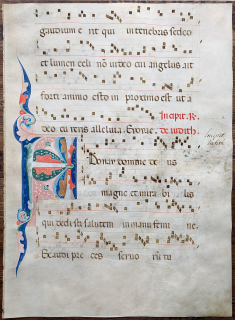 gaudium e rit qui in tenebris sedeo
et lumen celi non video cui angelus ait
forti animo esto in proximo est ut a
deo cu reris alleluia. Evovae. de iudith.
Incipit. R.
donay domine de us
magne et mira bi lis
qui dedisti salutem in manu femi ne,
Exaudi pre ces servo rum tu